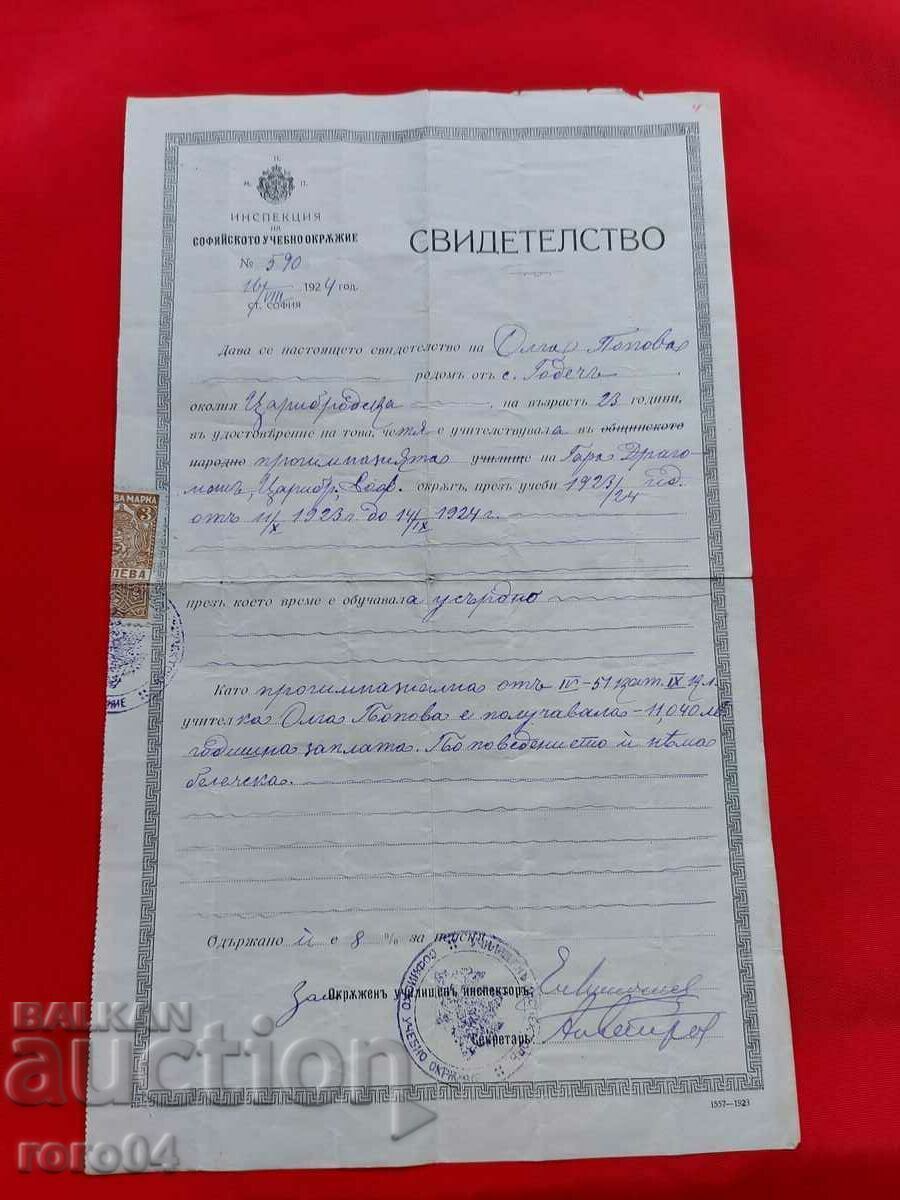 Н.
М. П.
ИНСПЕКЦИЯ
на
СОФИЙСКОТО УЧЕБНО ОКРѪЖИЕ
№ 590
16/VIII 1924 год.
гр. СОФИЯ
СВИДЕТЕЛСТВО
Дава се настоящето свидетелство на Олга Попова
родомъ отъ с. Годечъ
околия Царибродска, на възрасть 23 години,
въ удостовѣрение на това, че тя е учителствувала въ общинското
народно прогимназията училище на Гара Драго-
манъ, Царибр. окрѫгъ, презъ учебн 1923/24 год.
отъ 11/X 1923 г. до 14/IX 1924 г.
презъ което време е обучавала усърдно
Като прогимназиална отъ IV-51
учителка Олга Попова е получавала 11040 лв
годишна заплата. По поведението ѝ нѣма
бележка.
Одържано ѝ е 8 % за пенсия
За Окрѫженъ училищенъ инспекторъ:
Секретарь
1557—1923
ВА МАРКА
3
ЛЕВА
СОФИЙСКО УЧЕБНО ОКРѪЖИЕ
BALKAN
auction
roro04